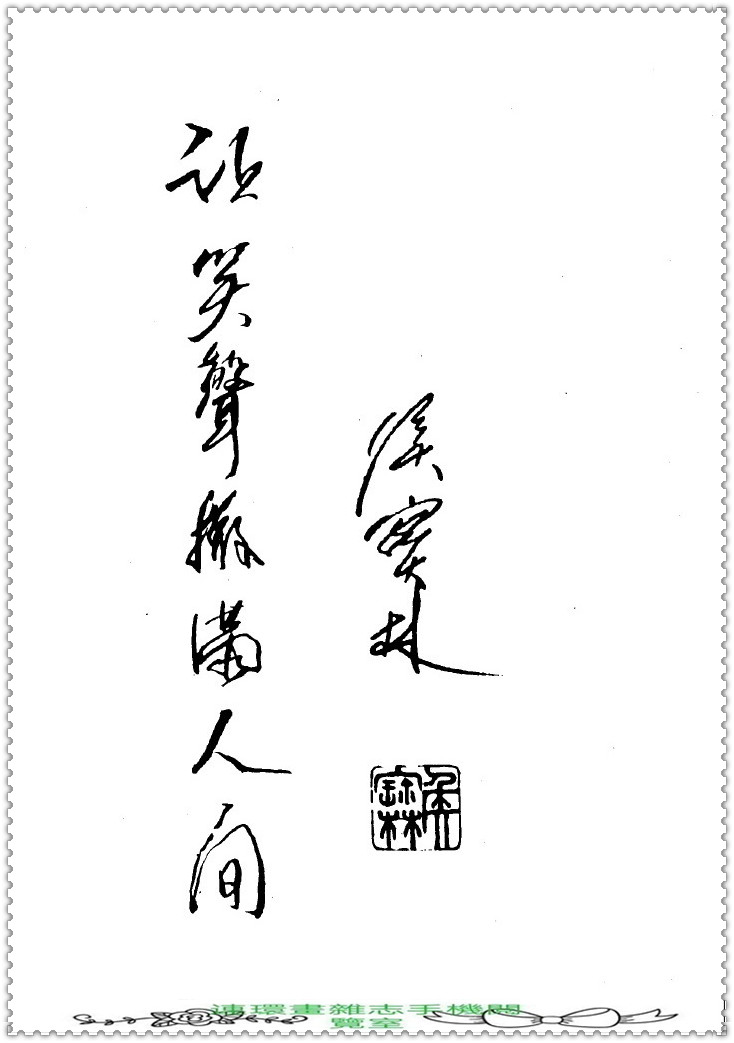 让笑聲撒滿人间
侯寶林
侯寶林
連環畫雜志手機閱
覽室